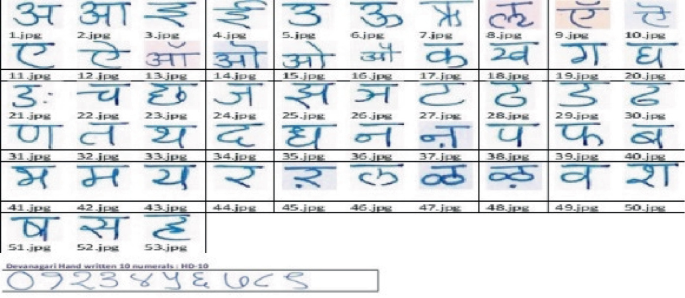 अ आ इ ई उ ऊ ऋ ऌ ऍ ऎ
1.jpg 2.jpg 3.jpg 4.jpg 5.jpg 6.jpg 7.jpg 8.jpg 9.jpg 10.jpg
ए ऐ ऑ ऒ ओ औ क ख ग घ
11.jpg 12.jpg 13.jpg 14.jpg 15.jpg 16.jpg 17.jpg 18.jpg 19.jpg 20.jpg
ङ च छ ज झ ञ ट ठ ड ढ
21.jpg 22.jpg 23.jpg 24.jpg 25.jpg 26.jpg 27.jpg 28.jpg 29.jpg 30.jpg
ण त थ द ध न ऩ प फ ब
31.jpg 32.jpg 33.jpg 34.jpg 35.jpg 36.jpg 37.jpg 38.jpg 39.jpg 40.jpg
भ म य र ऱ ल ळ ऴ व श
41.jpg 42.jpg 43.jpg 44.jpg 45.jpg 46.jpg 47.jpg 48.jpg 49.jpg 50.jpg
ष स ह
51.jpg 52.jpg 53.jpg
Devanagari Hand written 10 numerals : HD-10
०१२३४५६७८९